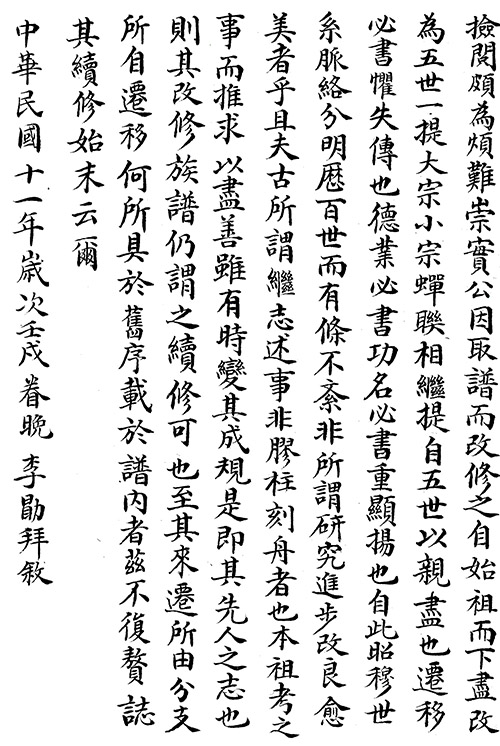 撿閱頗為煩難崇實公因取譜而改修之自始祖而下盡改
為五世一提大宗小宗蟬聯相繼提自五世以親盡也遷移
必書懼失傳也德業必書功名必書重顯揚也自此昭穆世
系脈絡分明歷百世而有條不紊非所謂研究進步改良愈
美者乎且夫古所謂繼志述事非膠柱刻舟者也本祖考之
事而推求以盡善雖有時變其成規是即其先人之志也
則其改修族譜仍謂之續修可也至其來遷所由分支
所自遷移何所具於舊序載於譜內者茲不復贅誌
其續修始末云爾
中華民國十一年歲次壬戌眷晚 李勛拜敘